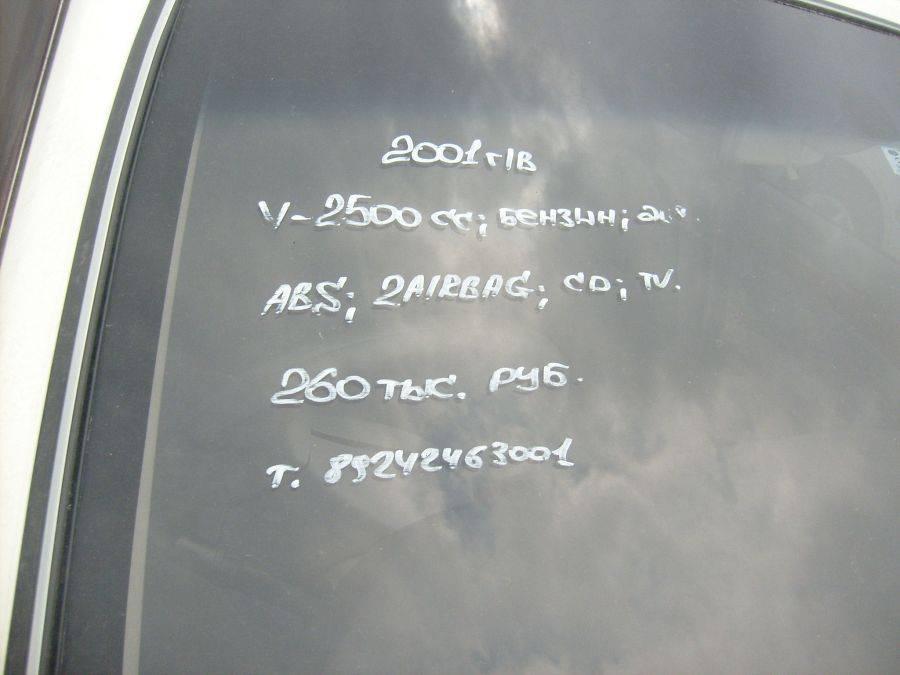 2001 г/в
V-2500 cc; бензин;
ABS; 2AIRBAG; CD; TV.
260 тыс. руб.
т. 89242463001